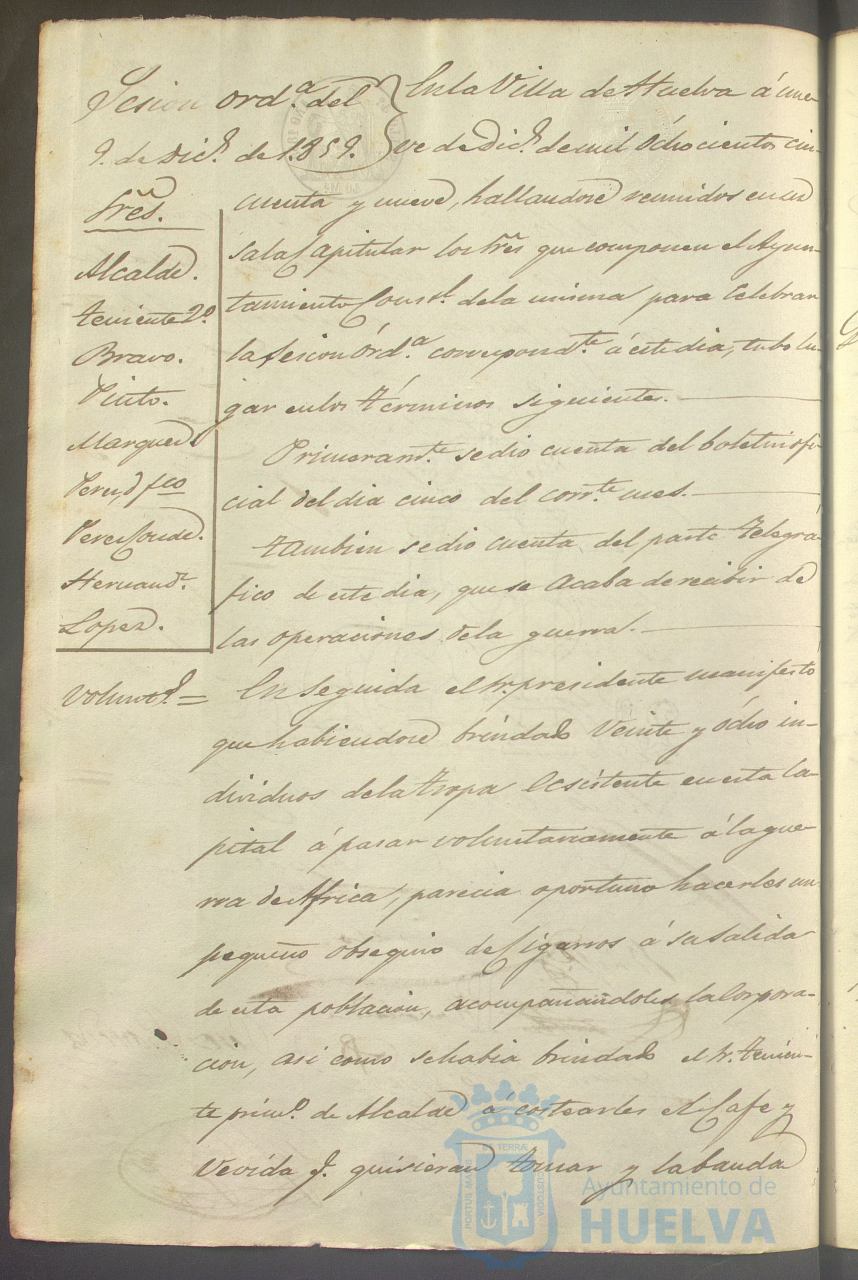 Sesion ord.ª del
9. de Dic.e de 1.859.
Sres.
Alcalde.
teniente 2.º
Bravo.
Pinto.
Marquez.
Perez fco
Perez Conde.
Hernand.z
Lopez.
En la Villa de Huelva á nue-
ve de Dic.e de mil óchocientos cin-
cuenta y nueve, hallandose reunidos en su
sala Capitular los Sres que componen el Ayun-
tamiento Const.l de la misma para Celebrar
la sesion Órd.ª correspond.te á este dia, tubo lu-
gar en los términos siguientes.
Primeram.te se dio cuenta del boletin ofi-
cial del dia cinco del corr.te mes.
tambien se dio cuenta del parte telegra-
fico de este dia, que se acaba de recibir de
las operaciones de la guerra.
Volunt.s =
En Seguida el Sr. presidente manifestó
que habiendose brindado Veinte y ócho in-
dividuos de la tropa Ecsistente en esta Ca-
pital á pasar voluntariamente á la gue-
rra de Africa, parecia oportuno hacerles un
pequeño obsequio de Cigarros á su Salida
de esta poblacion, acompañandoles la Corpora-
cion, asi como se habia brindado el Sr. tenien-
te prim.º de Alcalde á costearles el Cafe y
Vevida q. quisieran tomar y la banda
DE TERRAE
PORTUS MARIS
CUSTODIA
Ayuntamiento de
HUELVA